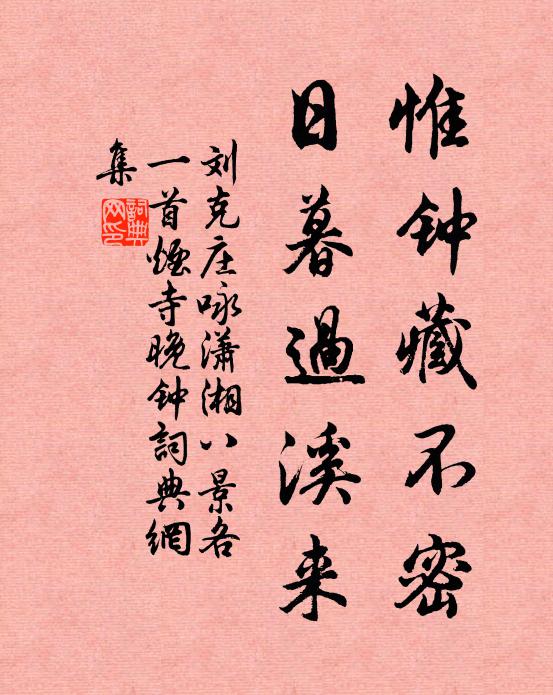 惟钟藏不密
日暮過溪来
刘克庄咏潇湘八景各
一首烟寺晚钟詞典網
集
詞典網印